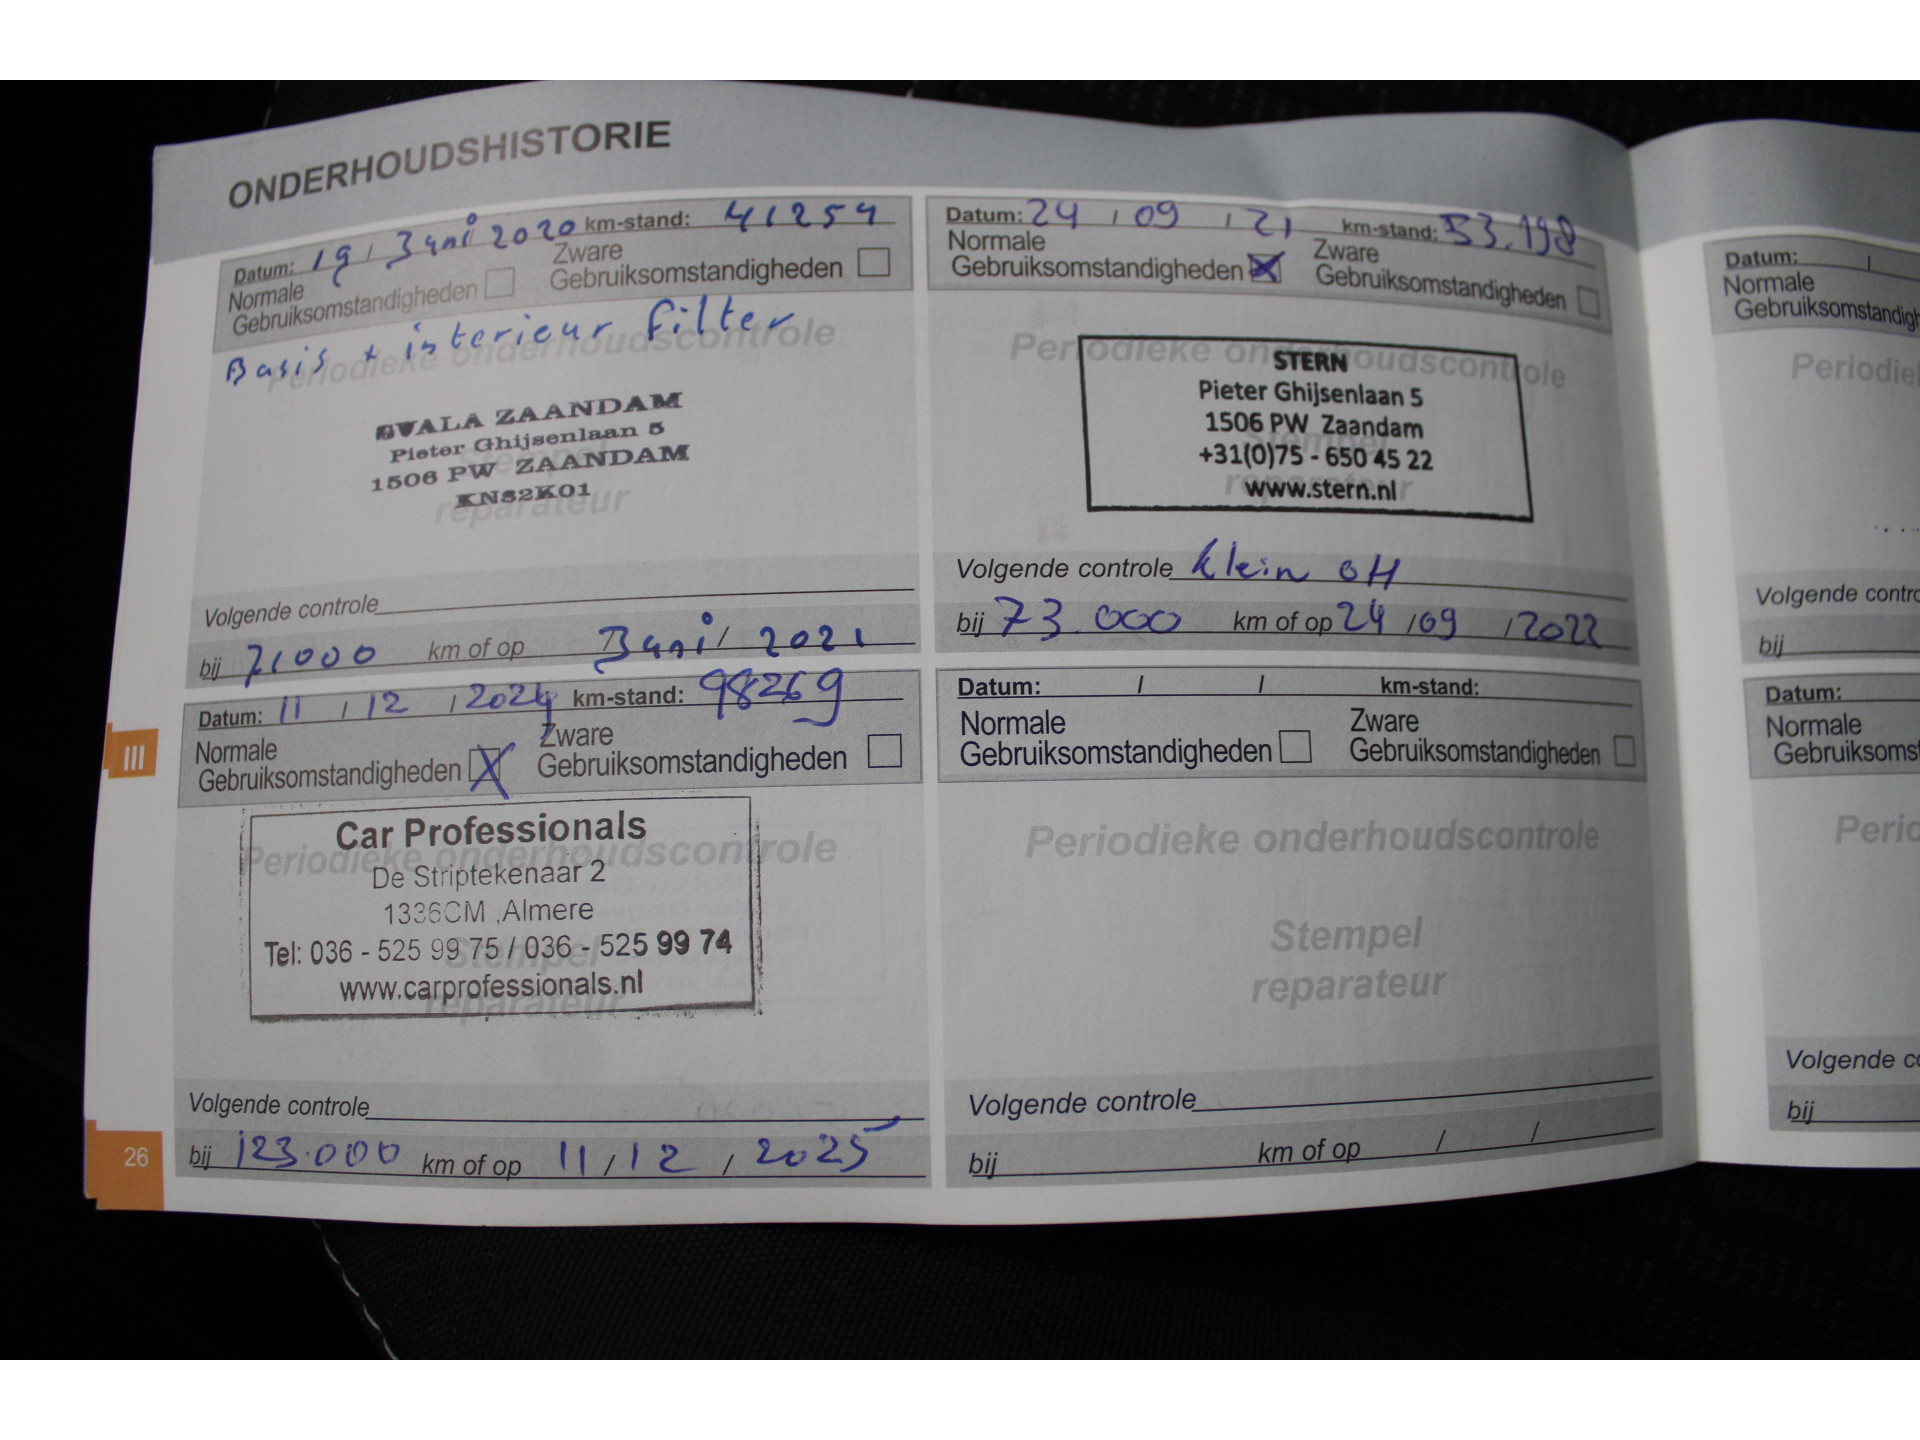 ONDERHOUDSHISTORIE
Datum: 19 / Juni 2020 km-stand: 41254
Normale
Gebruiksomstandigheden
Zware
Gebruiksomstandigheden
Basis + interieur filter
Periodieke onderhoudscontrole
SVALA ZAANDAM
Pieter Ghijsenlaan 5
1506 PW ZAANDAM
KN82K01
Stempel
reparateur
Volgende controle
bij 71000 km of op Juni / 2021
Datum: 24 / 09 / 21 km-stand: 53.198
Normale
Gebruiksomstandigheden
Zware
Gebruiksomstandigheden
Periodieke onderhoudscontrole
STERN
Pieter Ghijsenlaan 5
1506 PW Zaandam
+31(0)75 - 650 45 22
www.stern.nl
Stempel
reparateur
Volgende controle klein OH
bij 73.000 km of op 24 / 09 / 2022
Datum: 11 / 12 / 2024 km-stand: 98269
Normale
Gebruiksomstandigheden
Zware
Gebruiksomstandigheden
Periodieke onderhoudscontrole
Car Professionals
De Striptekenaar 2
1336CM ,Almere
Tel: 036 - 525 99 75 / 036 - 525 99 74
www.carprofessionals.nl
Stempel
reparateur
Volgende controle
bij 123.000 km of op 11 / 12 / 2025
Datum: / / km-stand:
Normale
Gebruiksomstandigheden
Zware
Gebruiksomstandigheden
Periodieke onderhoudscontrole
Stempel
reparateur
Volgende controle
bij km of op / /
III
26
Datum: /
Normale
Gebruiksomstandigh
Periodiek
Volgende contro
bij
Datum:
Normale
Gebruiksoms
Perio
Volgende co
bij